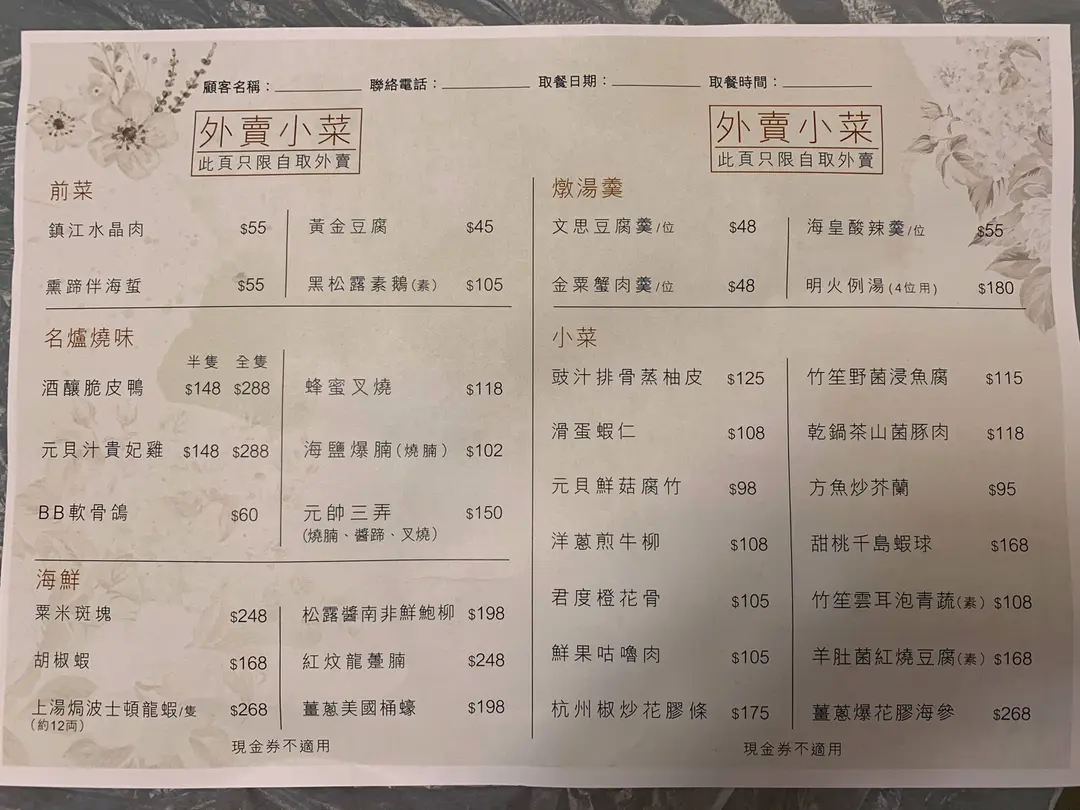 顧客名稱：________ 聯絡電話：________ 取餐日期：________ 取餐時間：________
外賣小菜
此頁只限自取外賣
前菜
鎮江水晶肉 $55 黃金豆腐 $45
熏蹄伴海蜇 $55 黑松露素鵝(素) $105
名爐燒味
半隻 全隻
酒釀脆皮鴨 $148 $288 蜂蜜叉燒 $118
元貝汁貴妃雞 $148 $288 海鹽爆腩(燒腩) $102
BB軟骨鴿 $60 元帥三弄 $150
(燒腩、醬蹄、叉燒)
海鮮
粟米斑塊 $248 松露醬南非鮮鮑柳 $198
胡椒蝦 $168 紅炆龍躉腩 $248
上湯焗波士頓龍蝦/隻 $268 薑蔥美國桶蠔 $198
(約12両)
現金券不適用
外賣小菜
此頁只限自取外賣
燉湯羹
文思豆腐羹/位 $48 海皇酸辣羹/位 $55
金粟蟹肉羹/位 $48 明火例湯(4位用) $180
小菜
豉汁排骨蒸柚皮 $125 竹笙野菌浸魚腐 $115
滑蛋蝦仁 $108 乾鍋茶山菌豚肉 $118
元貝鮮菇腐竹 $98 方魚炒芥蘭 $95
洋蔥煎牛柳 $108 甜桃千島蝦球 $168
君度橙花骨 $105 竹笙雲耳泡青蔬(素) $108
鮮果咕嚕肉 $105 羊肚菌紅燒豆腐(素) $168
杭州椒炒花膠條 $175 薑蔥爆花膠海參 $268
現金券不適用